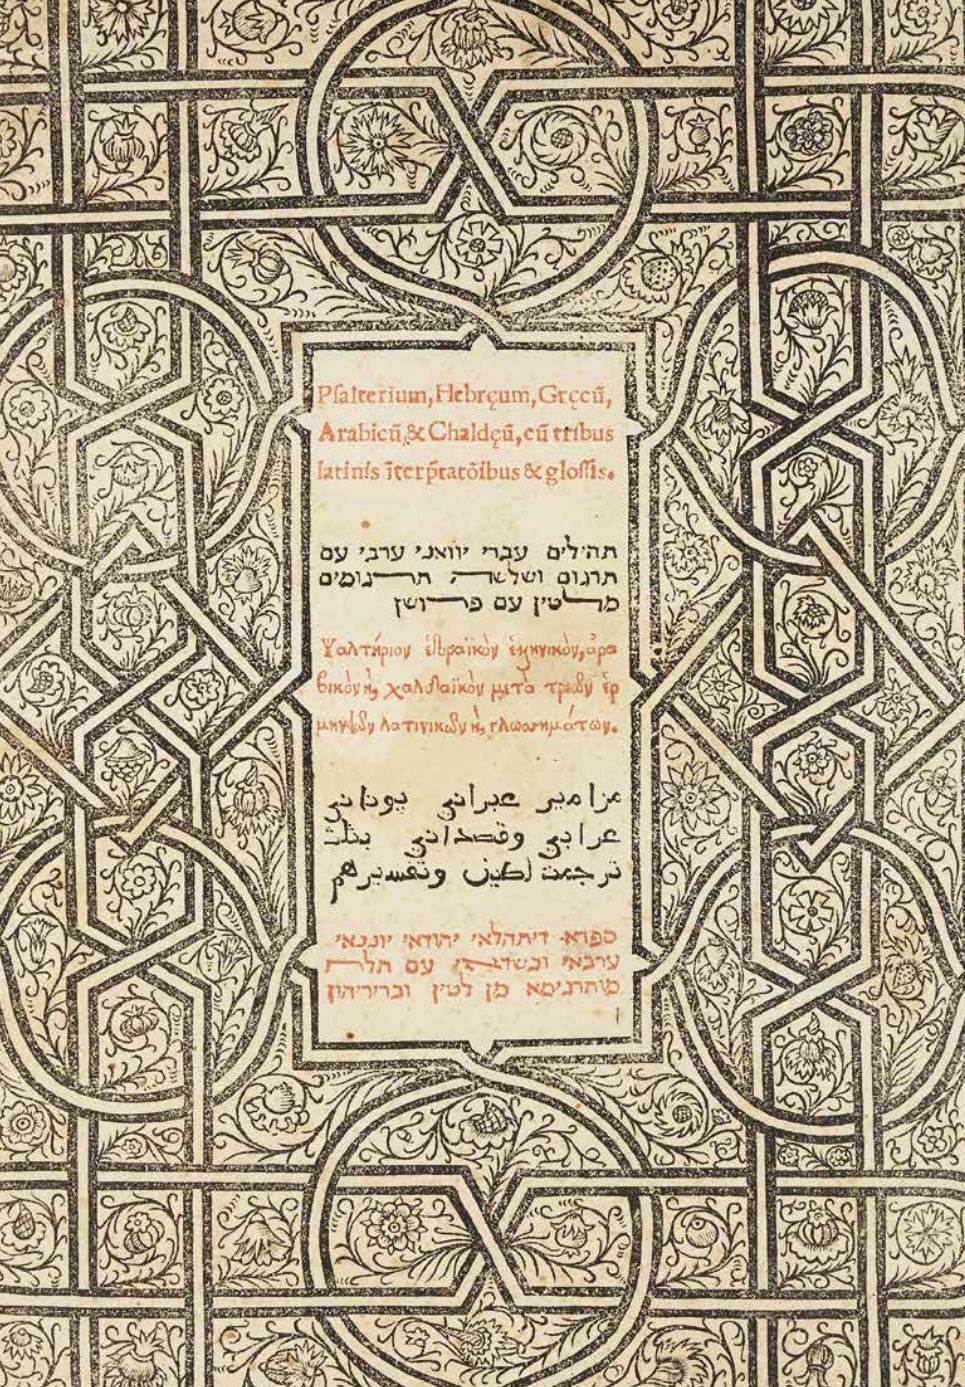 Psalterium, Hebręum, Gręcũ,
Arabicũ, & Chaldęũ, cũ tribus
latinis ĩterp̃tatõibus & glossis.
תהילים עברי יוואני ערבי עם
תרגום ושלשה תרגומים
מלטין עם פרושן
Ψαλτήριον ἑβραϊκὸν ἑλληνικὸν, ἀρα
βικὸν ϗ χαλδαϊκὸν μετὰ τριῶν ἑρ
μηνειῶν λατινικῶν ϗ γλωσσημάτων.
مزامير عبراني يوناني
عرابي وقصداني بثلث
ترجمت لطين وتفسيرهم
ספרא דיתהלאי יהודאי יוננאי
ערבאי וכשדאי עם תלת
מותרגימא מן לטין ובריריהון